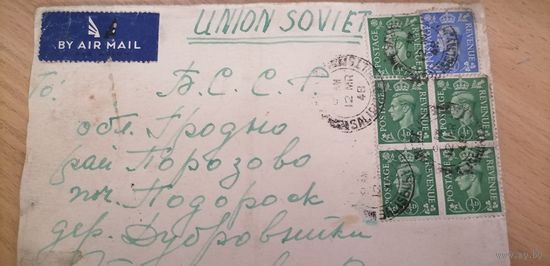 UNION SOVIET
BY AIR MAIL
То: Б.С.С.Р.
обл. Гродно
рай Порозово
поч. Подороск
дер. Дубровники
POSTAGE REVENUE
POSTAGE REVENUE
POSTAGE REVENUE
POSTAGE REVENUE
POSTAGE REVENUE
POSTAGE REVENUE
12 MR
48